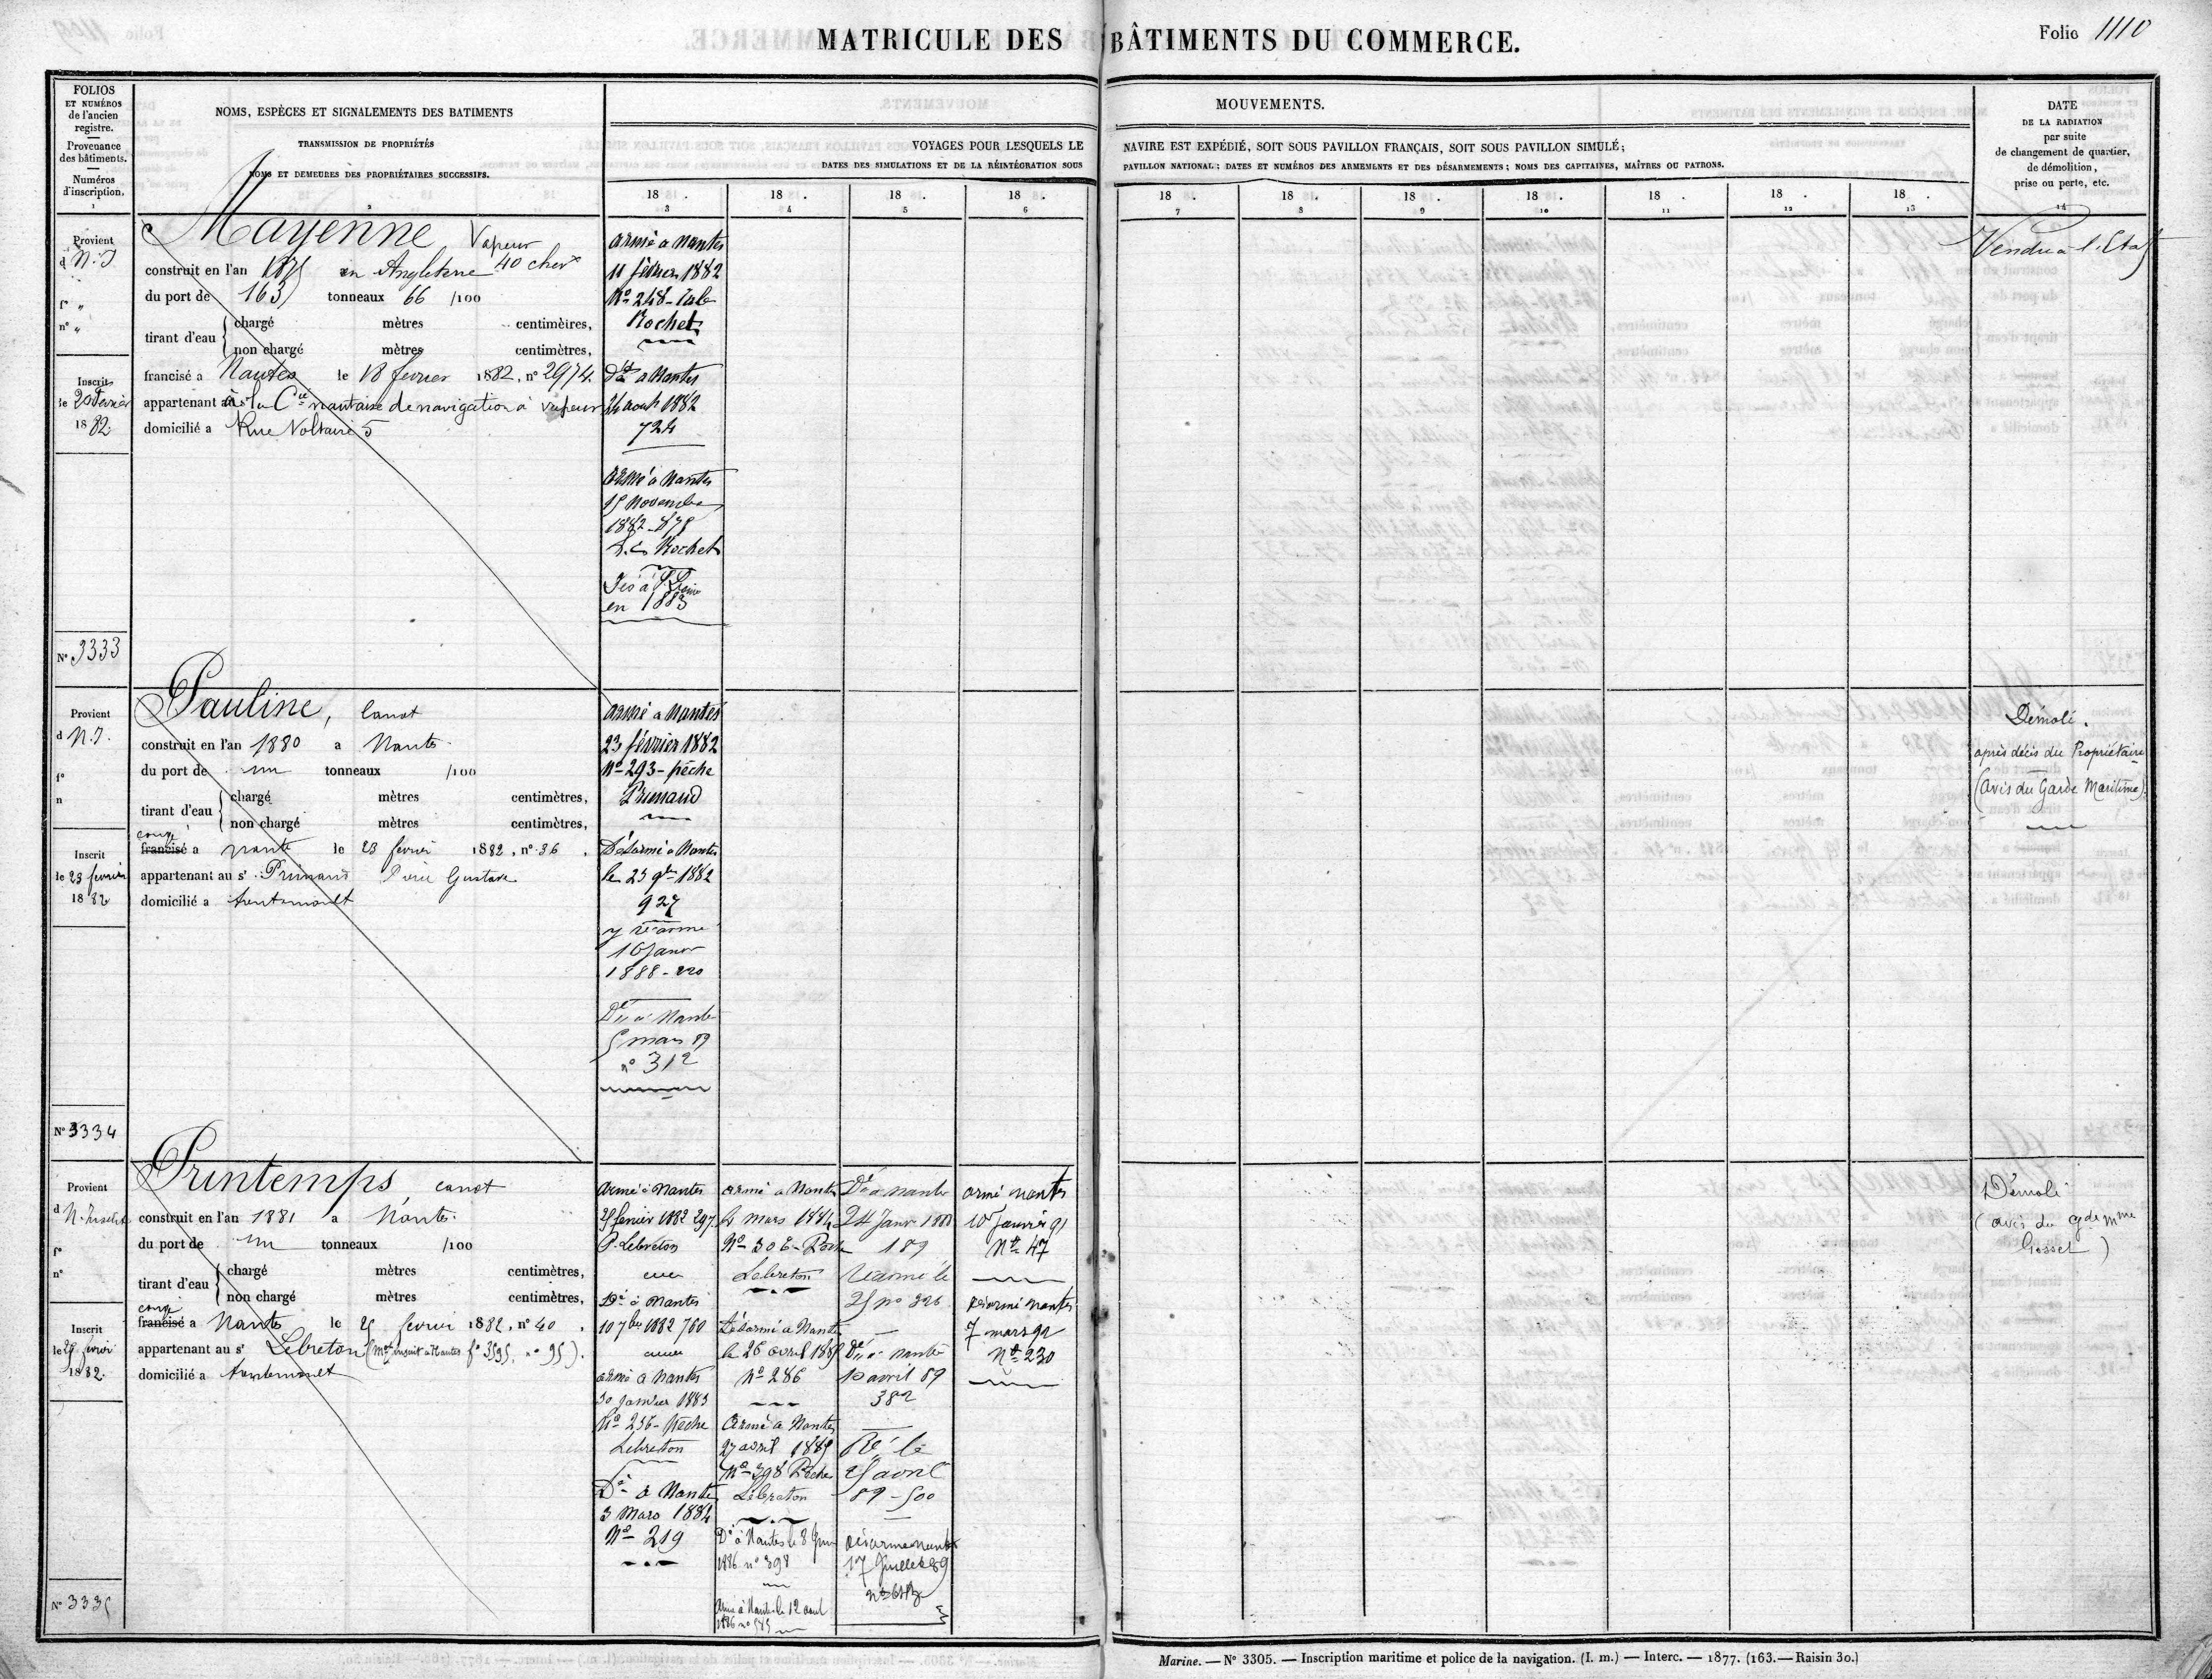 MATRICULE DES BÂTIMENTS DU COMMERCE.
Folio 1110
FOLIOS
ET NUMÉROS
de l'ancien
registre.
Provenance
des bâtiments.
Numéros
d'inscription.
1
NOMS, ESPÈCES ET SIGNALEMENTS DES BATIMENTS
TRANSMISSION DE PROPRIÉTÉS
NOMS ET DEMEURES DES PROPRIÉTAIRES SUCCESSIFS.
2
MOUVEMENTS.
VOYAGES POUR LESQUELS LE NAVIRE EST EXPÉDIÉ, SOIT SOUS PAVILLON FRANÇAIS, SOIT SOUS PAVILLON SIMULÉ;
DATES DES SIMULATIONS ET DE LA RÉINTÉGRATION SOUS PAVILLON NATIONAL; DATES ET NUMÉROS DES ARMEMENTS ET DES DÉSARMEMENTS; NOMS DES CAPITAINES, MAÎTRES OU PATRONS.
18 . 18 . 18 . 18 . 18 . 18 . 18 . 18 . 18 . 18 . 18 .
3 4 5 6 7 8 9 10 11 12 13
DATE
DE LA RADIATION
par suite
de changement de quartier,
de démolition,
prise ou perte, etc.
14
Provient
d N.I
f° "
n° "
Inscrit
le 20 février
1882.
N° 3333
Mayenne Vapeur
40 chevx
construit en l'an 1875 en Angleterre
du port de 163 tonneaux 66 /100
tirant d'eau
chargé mètres centimètres,
non chargé mètres centimètres,
francisé a Nantes le 18 fevrier 1882, n° 2974.
appartenant à la Cie nantaise de navigation à vapeur
domicilié a Rue Voltaire 5
armé a Nantes
11 février 1882
No 248
Rochet
Dé a Nantes
24 aout 1882
724
armé a Nantes
15 Novembre
1882 - 875
Rochet
en 1883
Vendu à l'Etat
Provient
d N.I.
f°
n
Inscrit
le 23 fevrier
1882
N° 3334
Pauline, Canot
construit en l'an 1880 a Nantes
du port de un tonneaux /100
tirant d'eau
chargé mètres centimètres,
non chargé mètres centimètres,
congé
francisé a Nantes le 23 fevrier 1882, n° 36.
appartenant au sr Gustave
domicilié a trentemoult
armé a Nantes
23 février 1882
No 293 - pêche
Désarmé a Nantes
le 23 9bre 1882
927
y réarmé
16 Janvr
1888 - 220
Dé a Nantes
5 mars 89
n° 312
Démoli.
après décès du Propriétaire
(avis du Garde Maritime).
Provient
d N. Inscrit
f°
n°
Inscrit
le 25 fevrier
1882.
N° 3335
Printemps, canot
construit en l'an 1881 a Nantes.
du port de un tonneaux /100
tirant d'eau
chargé mètres centimètres,
non chargé mètres centimètres,
congé
francisé a Nantes le 25 fevrier 1882, n° 40.
appartenant au sr Lebreton (inscrit a Nantes f° 3595, n° 95).
domicilié a trentemoult
armé à Nantes
25 fevrier 1882 297.
P. Lebreton
Dé à Nantes
10 7bre 1882 760
armé a Nantes
30 Janvier 1883
No 256 - Pêche
Lebretton
Dé a Nantes
3 Mars 1884
No 219
armé a Nantes
4 mars 1884
No 306 - Pêche
Lebreton
Désarmé a Nantes
le 26 avril 1885
No 286
Armé a Nantes
27 avril 1885
No 398 Pêche
Lebreton
Dé à Nantes le 8 Juin
1886 n° 398
Armé à Nantes le 12 aout
1886 n° 585
Dé a Nantes
24 Janv 1888
189
Réarmé le
25 n° 326
Dé a Nantes
10 avril 89
382
Ré le
25 avril
89 - 500
désarmé Nantes
17 Juillet 89
armé Nantes
10 Janvier 91
No 47
désarmé Nantes
7 mars 92
No 230
Démoli
(avis du gde mme
Gosset)
Marine. — N° 3305. — Inscription maritime et police de la navigation. (I. m.) — Interc. — 1877. (163. — Raisin 30.)